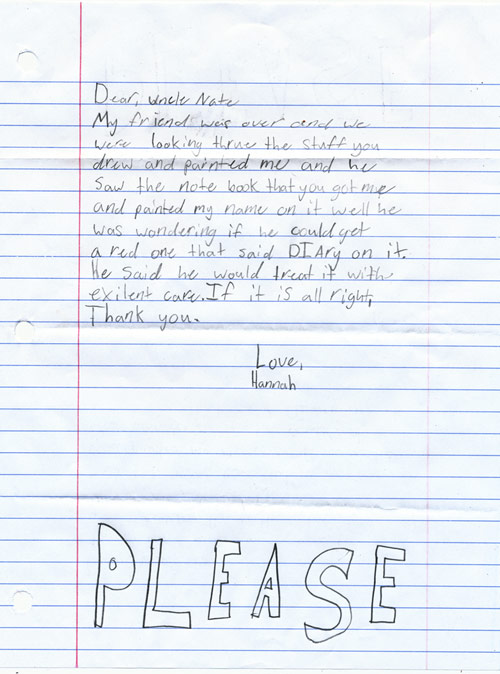 Dear, Uncle Nate
My friend was over and we
were looking thrue the stuff you
drew and painted me and he
saw the note book that you got me
and painted my name on it well he
was wondering if he could get
a red one that said DIAry on it.
He said he would treat it with
exilent care. If it is all right,
Thank you.
Love,
Hannah
PLEASE